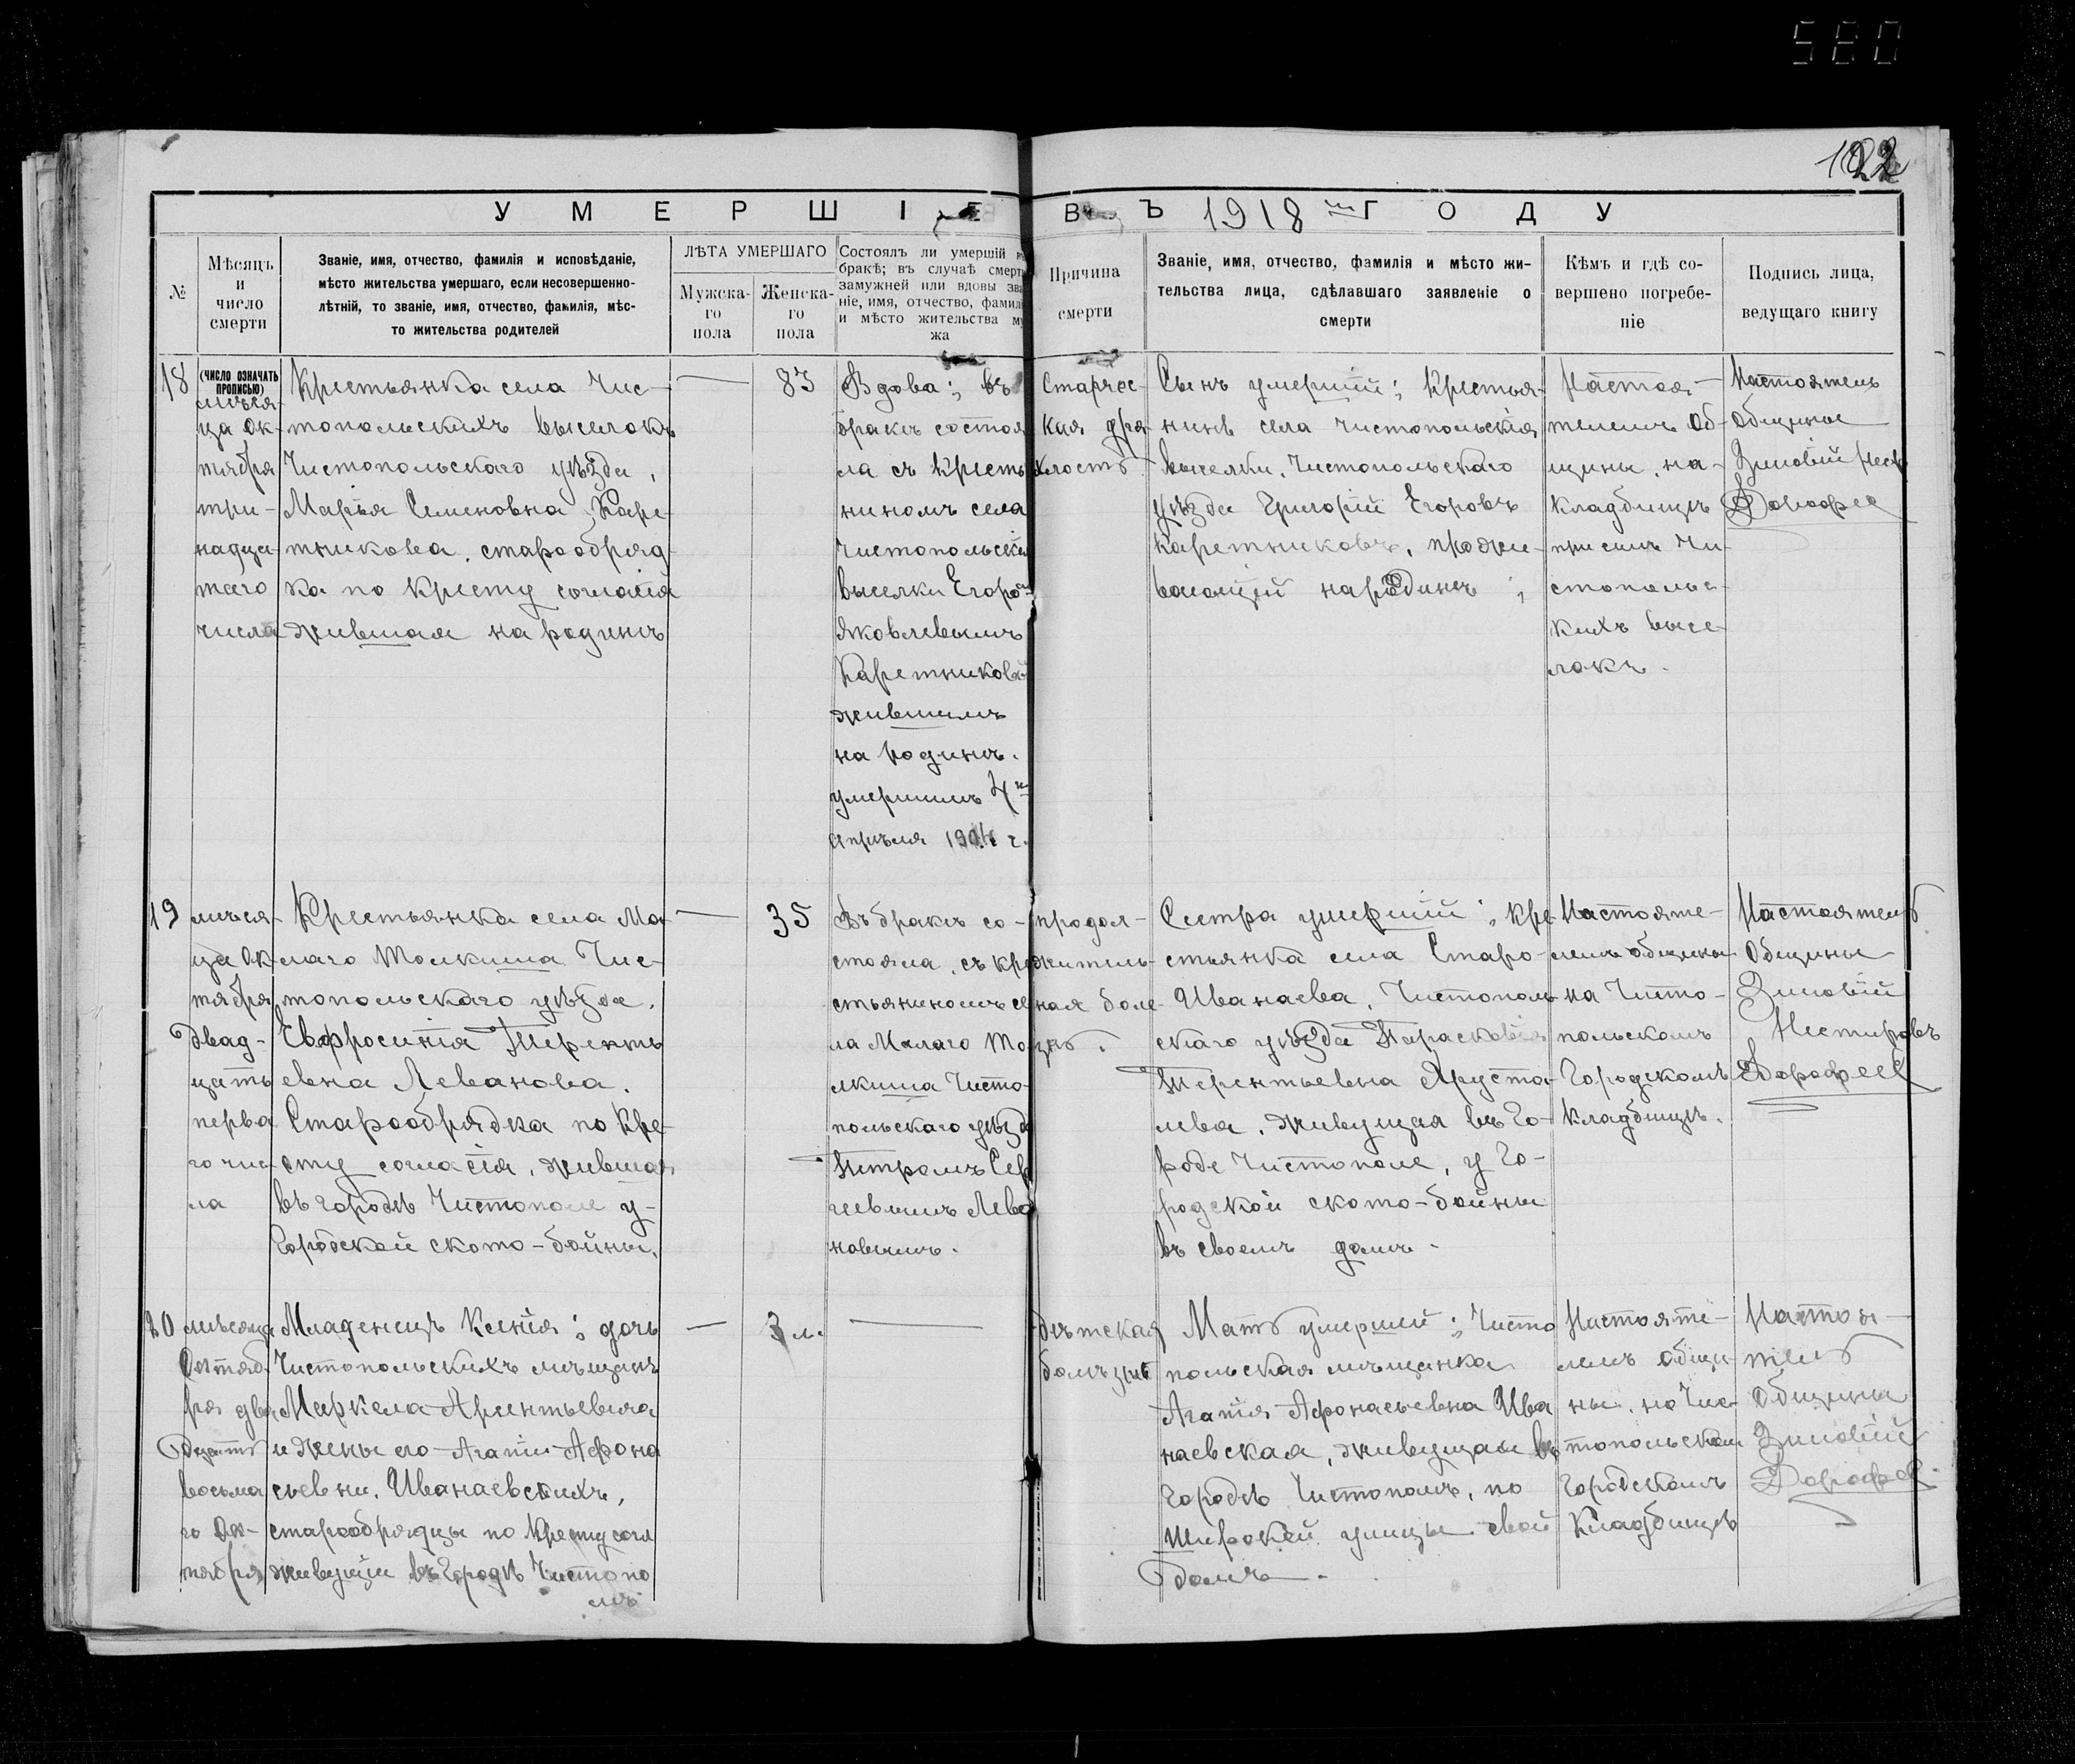 580
122
УМЕРШІЕ ВЪ 1918 ГОДУ
№
Мѣсяцъ
и
число
смерти
Званіе, имя, отчество, фамилія и исповѣданіе,
мѣсто жительства умершаго, если несовершенно-
лѣтній, то званіе, имя, отчество, фамилія, мѣс-
то жительства родителей
ЛѢТА УМЕРШАГО
Мужска-
го
пола
Женска-
го
пола
Состоялъ ли умершій
бракѣ; въ случаѣ смерт
замужней или вдовы зва
ніе, имя, отчество, фамил
и мѣсто жительства му
жа
Причина
смерти
Званіе, имя, отчество, фамилія и мѣсто жи-
тельства лица, сдѣлавшаго заявленіе о
смерти
Кѣмъ и гдѣ со-
вершено погребе-
ніе
Подпись лица,
ведущаго книгу
18
(ЧИСЛО ОЗНАЧАТЬ
ПРОПИСЬЮ)
мѣся-
ца ок-
тября
три-
надца-
таго
числа
Крестьянка села Чис-
топольскихъ выселокъ
Чистопольскаго уѣзда,
Марья Семеновна Каре-
тникова. старообряд-
ка по кресту согласія
жившая на родинѣ
—
83
Вдова; въ
бракѣ состоя
ла съ кресть
ниномъ села
Чистопольскія
выселки Егоро
Яковлевымъ
Каретниковы
жившимъ
на родинѣ.
умершимъ 4
апрѣля г.
Старчес-
кая дря
хлость
Сынъ умершій; крестья-
нинъ села Чистопольскія
выселки, Чистопольскаго
уѣзда Григорій Егоровъ
Каретниковъ, прожи-
вающій народинѣ;
Настоя-
телемъ об-
щины, на-
кладбищѣ
при сихъ Чи-
стопольс-
кихъ высе-
локъ.
Настоятель
Общины
Зиновій Нест
Дорофее
19
мѣся-
ца ок-
тября
двад-
цать
перва
го чис
ла
Крестьянка села Ма-
лаго Толкиша Чис-
топольскаго уѣзда,
Евфросинія Теренть
евна Леванова.
Старообрядка по кре-
сту согласія, жившая
въ городѣ Чистополе у-
Городской ското-бойни.
—
35
Въ бракѣ со-
стояла, съ кре
стьяниномъ се
ла Малаго То
лкиша Чисто-
польскаго уѣзда
Петромъ Сер
геевымъ Лева
новымъ.
продол-
житель-
ная боле-
знь.
Сестра умершій; кре
стьянка села Старо-
Иванаева, Чистополь
скаго уѣзда Парасковія
Терентьевна Хруста-
лева, живущая въ го-
роде Чистополе, у Го-
родской ското-бойни
въ своемъ домѣ.
Настояте-
лемъ общины
на Чисто-
польскомъ
Городскомъ
кладбищѣ.
Настоятель
Общины
Зиновій
Нестеровъ
Дорофеев
20
мѣсяца
Октяб
ря два
дцать
восьма
го ок-
тября
Младенецъ Ксенія; дочь
Чистопольскихъ мѣщанъ
Маркела Арентьевича
и жены его Агапіи Афона
сьевны. Иванаевскихъ,
старообрядцы по кресту согл
живущіи въ городѣ Чистопо
лѣ
—
3 м.
дѣтская
болѣзнь
Мать умершей; Чисто
польская мѣщанка
Агапія Афонасьевна Ива
наевская, живущая въ
городѣ Чистополѣ, по
Широкой улицы свой
домъ.
Настояте-
лемъ общи-
ны, на Чис-
топольском
Городскомъ
Кладбищѣ
Настоя-
тель
Общины
Зиновій
Дорофеев